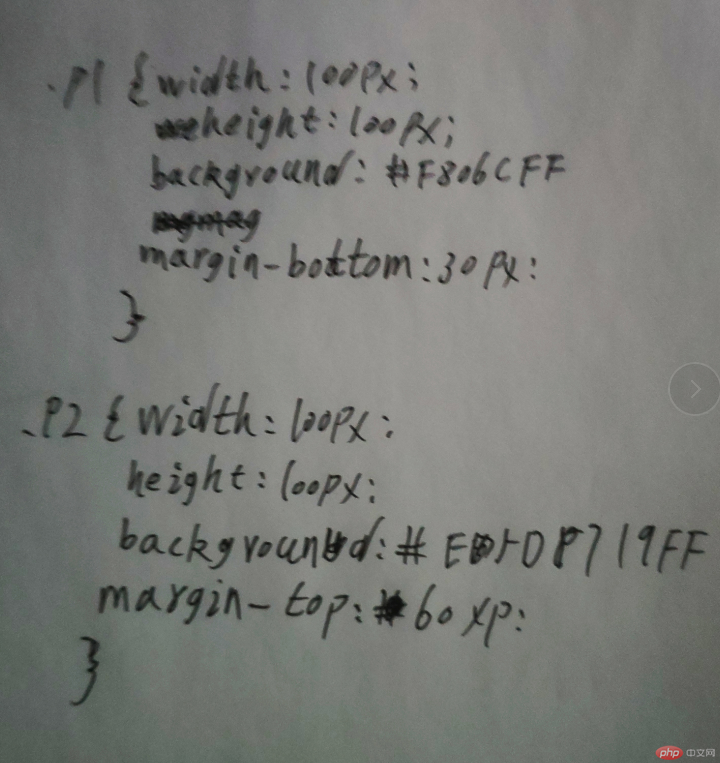 .P1 { width: 100px;
height: 100px;
background: #F806CFF
margin-bottom: 30px:
}
.P2 { width: 100px:
height: 100px:
background:#
margin-top: 60xp:
}
php 中文网